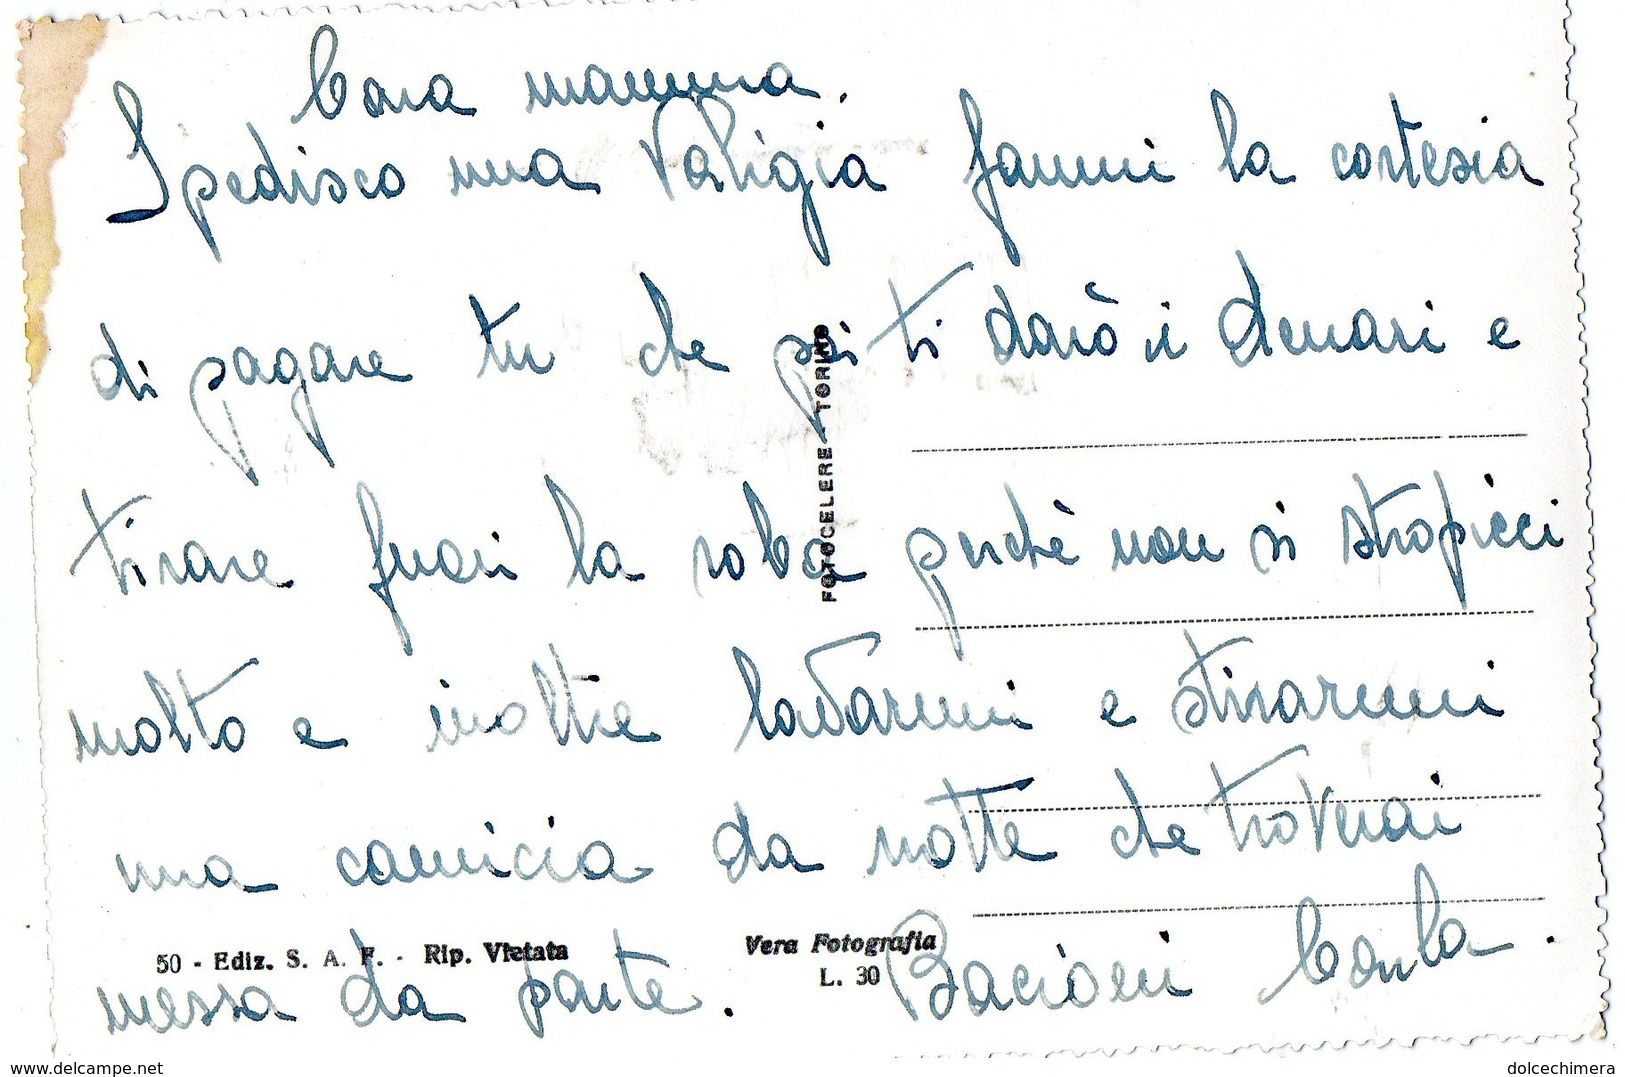 Cara mamma.
Spedisco una Valigia fammi la cortesia
di pagare tu che poi ti darò i denari e
tirare fuori la roba perchè non si stropicci
molto e inoltre lavarmi e stirarmi
una camicia da notte che troverai
messa da parte. Bacioni Carla.
FOTOCELERE - TORINO
50 - Ediz. S. A. F. - Rip. Vietata
Vera Fotografia
L. 30
www.delcampe.net
dolcechimera